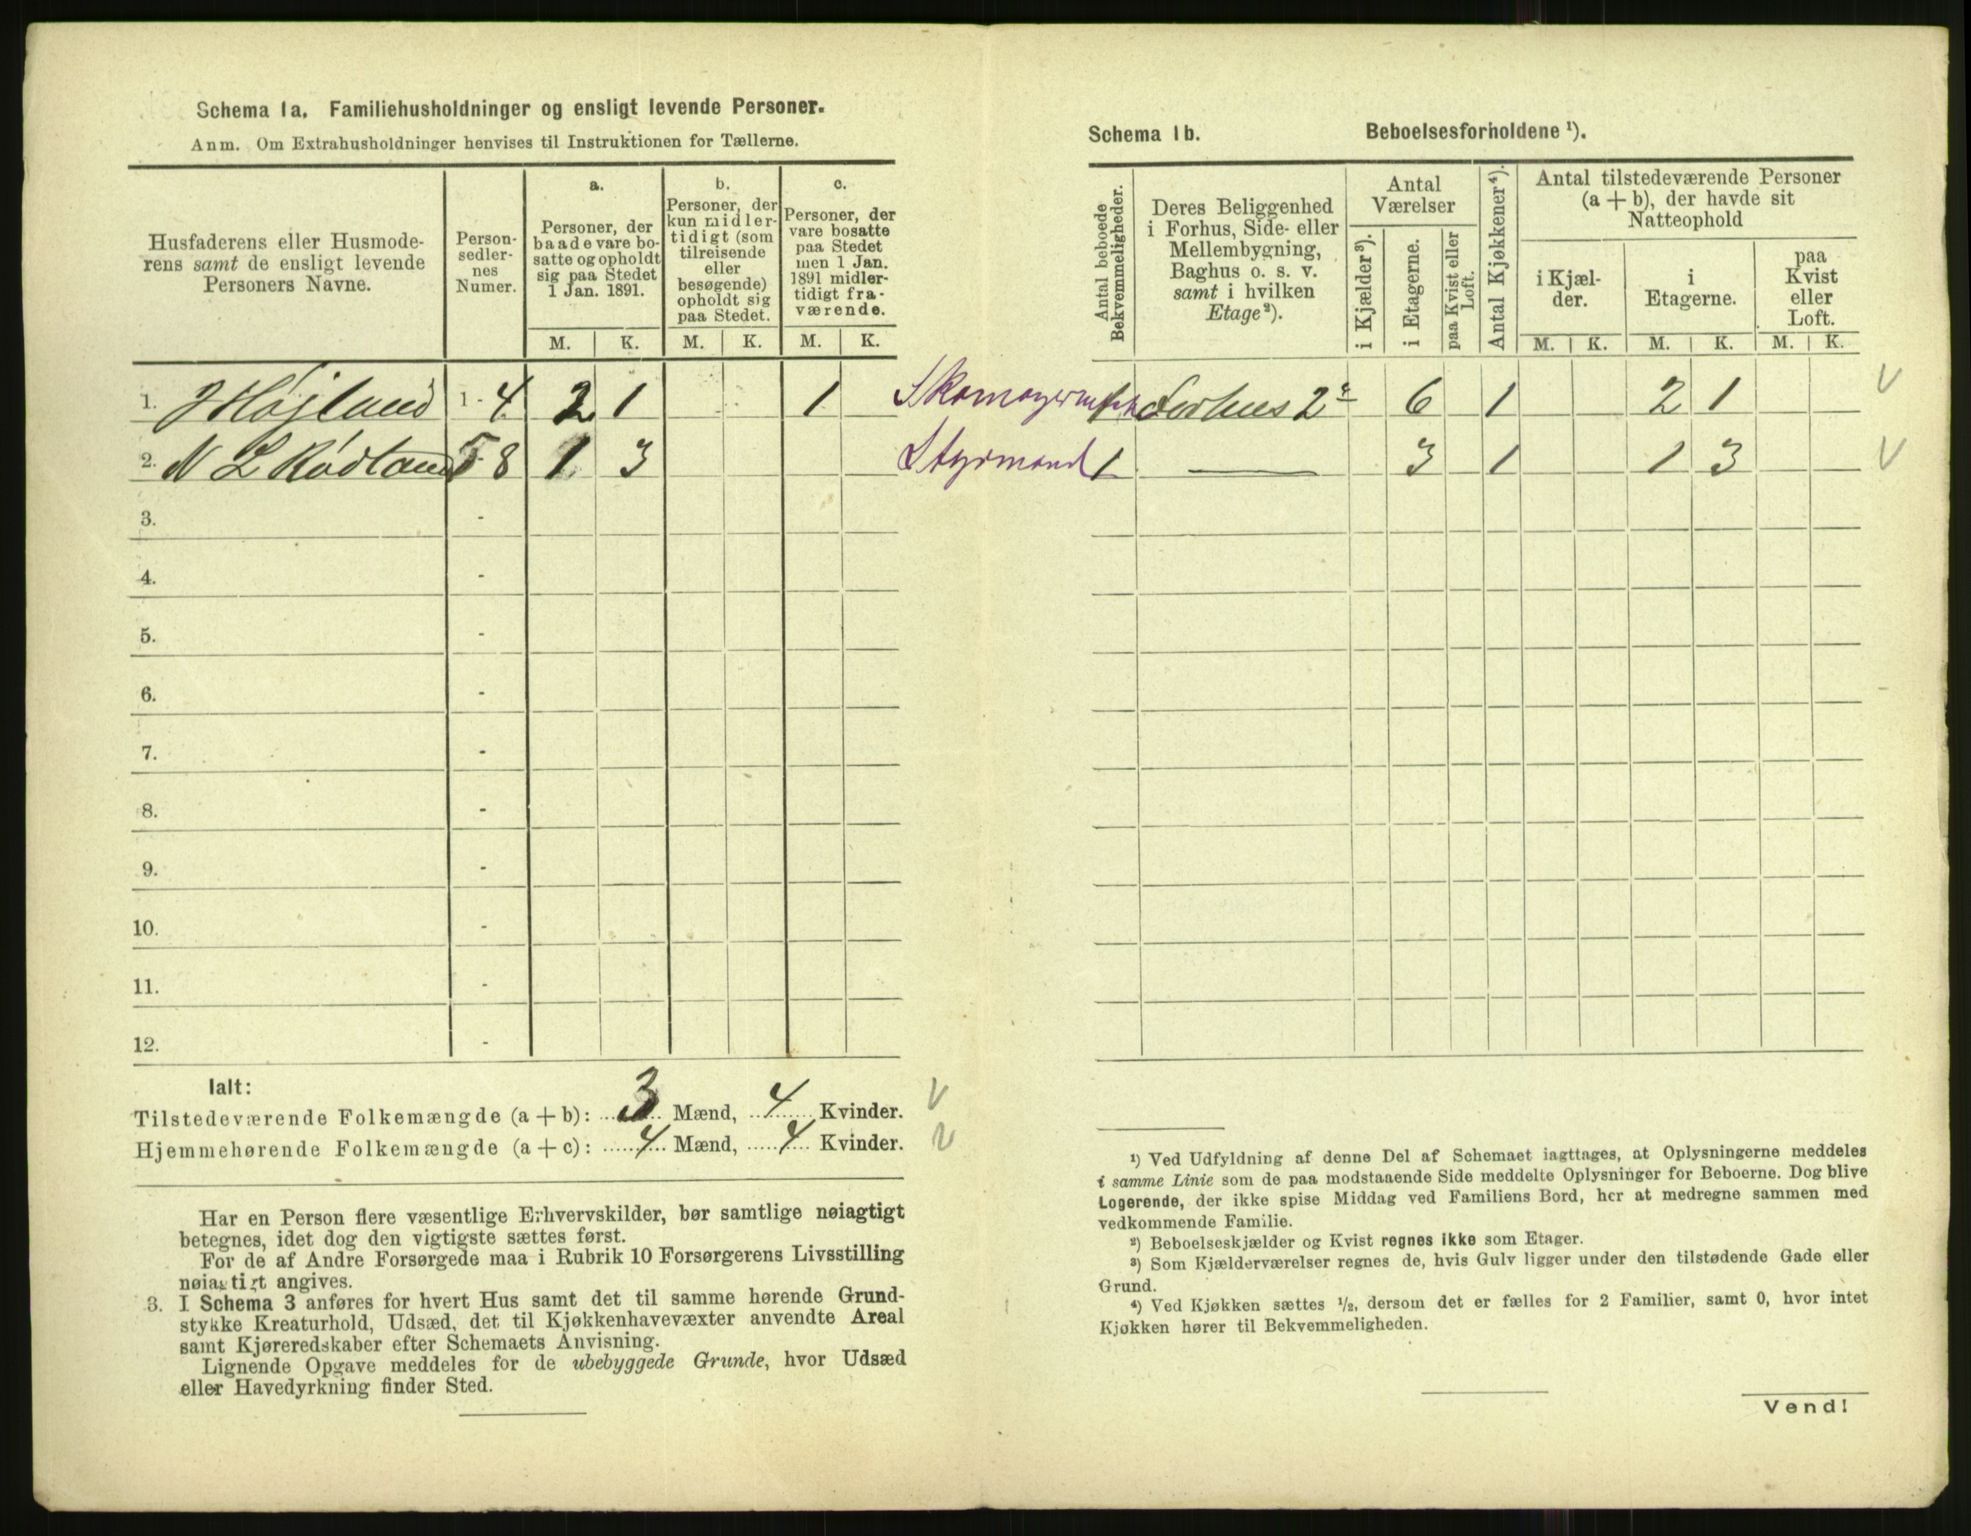 Schema 1a. Familiehusholdninger og ensligt levende Personer.
Anm. Om Extrahusholdninger henvises til Instruktionen for Tællerne.
Husfaderens eller Husmode-
rens samt de ensligt levende
Personers Navne.
Person-
sedler-
nes
Numer.
a.
Personer, der
baade vare bo-
satte og opholdt
sig paa Stedet
1 Jan. 1891.
b.
Personer, der
kun midler-
tidigt (som
tilreisende
eller
besøgende)
opholdt sig
paa Stedet.
c.
Personer, der
vare bosatte
paa Stedet
men 1 Jan.
1891 midler-
tidigt fra-
værende.
M. K. M. K. M. K.
1. J Højland 1 - 4 2 1 1
2. N L Rødland 5 8 1 3
3. -
4. -
5. -
6. -
7. -
8. -
9. -
10. -
11. -
12. -
Ialt:
Tilstedeværende Folkemængde (a + b): 3 Mænd, 4 Kvinder.
Hjemmehørende Folkemængde (a + c): 4 Mænd, 4 Kvinder.
Har en Person flere væsentlige Erhvervskilder, bør samtlige nøiagtigt
betegnes, idet dog den vigtigste sættes først.
For de af Andre Forsørgede maa i Rubrik 10 Forsørgerens Livsstilling
nøiagtigt angives.
3. I Schema 3 anføres for hvert Hus samt det til samme hørende Grund-
stykke Kreaturhold, Udsæd, det til Kjøkkenhavevæxter anvendte Areal
samt Kjøreredskaber efter Schemaets Anvisning.
Lignende Opgave meddeles for de ubebyggede Grunde, hvor Udsæd
eller Havedyrkning finder Sted.
Schema 1b. Beboelsesforholdene ¹).
Antal beboede
Bekvemmeligheder.
Deres Beliggenhed
i Forhus, Side- eller
Mellembygning,
Baghus o. s. v.
samt i hvilken
Etage²).
Antal
Værelser
i Kjælder³).
i Etagerne.
paa Kvist eller
Loft.
Antal Kjøkkener⁴).
Antal tilstedeværende Personer
(a + b), der havde sit
Natteophold
i Kjæl-
der.
i
Etagerne.
paa
Kvist
eller
Loft.
M. K. M. K. M. K.
1 Forhus 2e 6 1 2 1
Styrmand 1 — 3 1 1 3
¹) Ved Udfyldning af denne Del af Schemaet iagttages, at Oplysningerne meddeles
i samme Linie som de paa modstaaende Side meddelte Oplysninger for Beboerne. Dog blive
Logerende, der ikke spise Middag ved Familiens Bord, her at medregne sammen med
vedkommende Familie.
²) Beboelseskjælder og Kvist regnes ikke som Etager.
³) Som Kjælderværelser regnes de, hvis Gulv ligger under den tilstødende Gade eller
Grund.
⁴) Ved Kjøkken sættes ½, dersom det er fælles for 2 Familier, samt 0, hvor intet
Kjøkken hører til Bekvemmeligheden.
Vend!